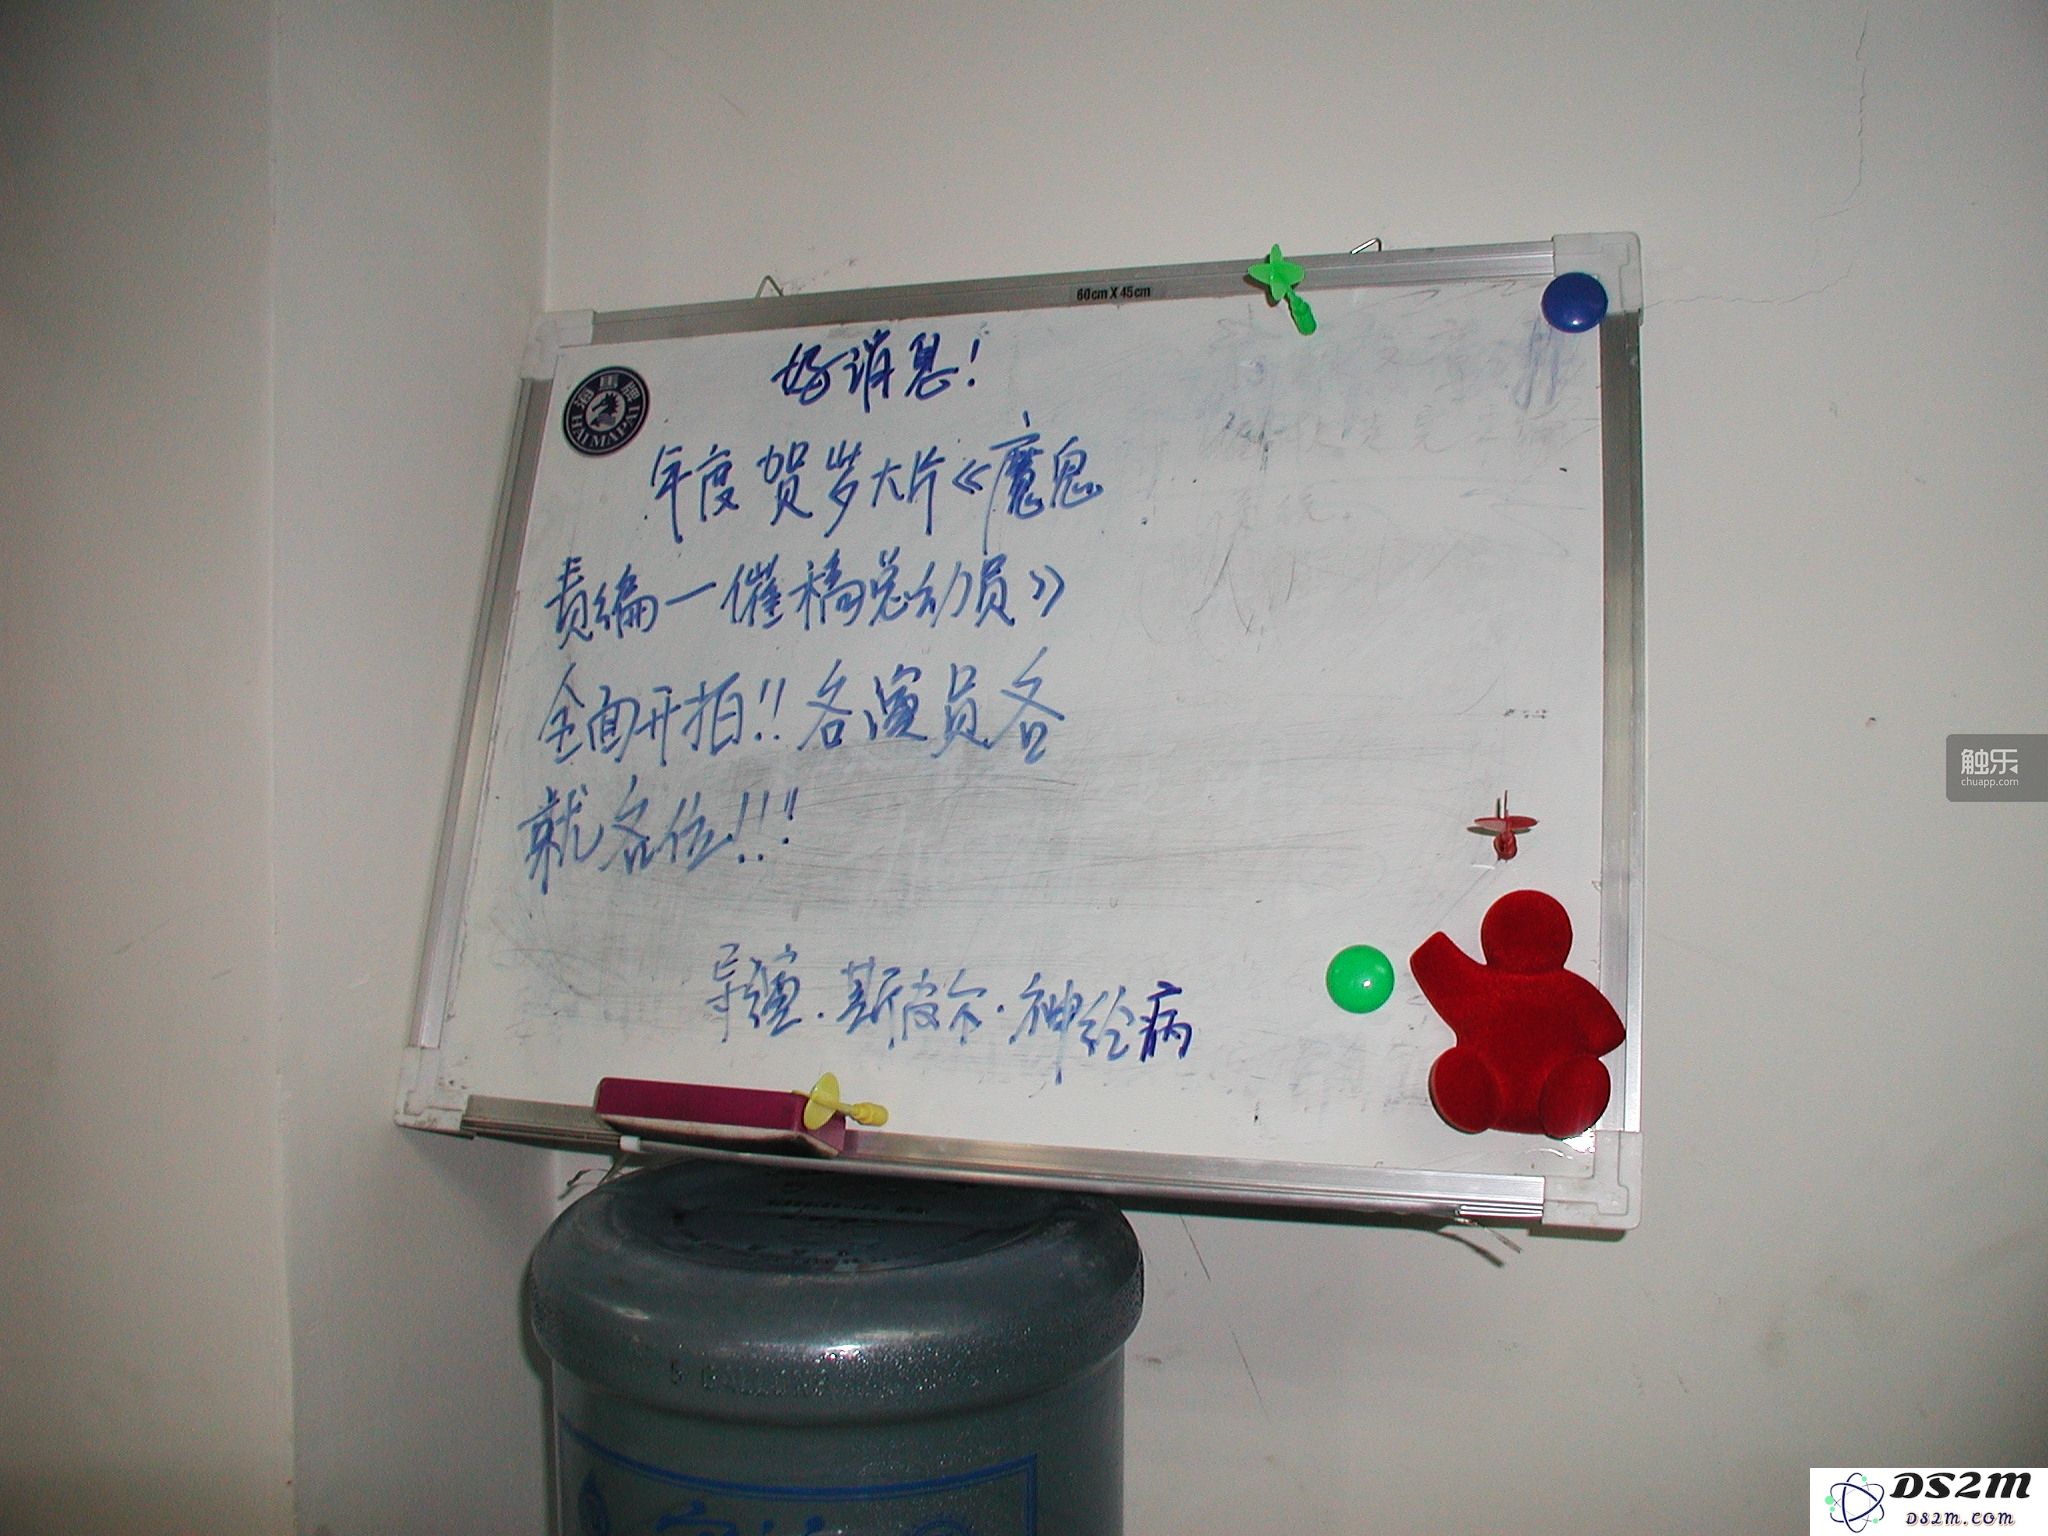 60cm X 45cm
海马牌
HAIMAPAI
好消息!
年度贺岁大片《魔鬼
责编一催稿总动员》
全面开拍!!各演员各
就各位!!!
导演.斯皮尔.神经病
触乐
chuapp.com
DS2M
DS2M.COM